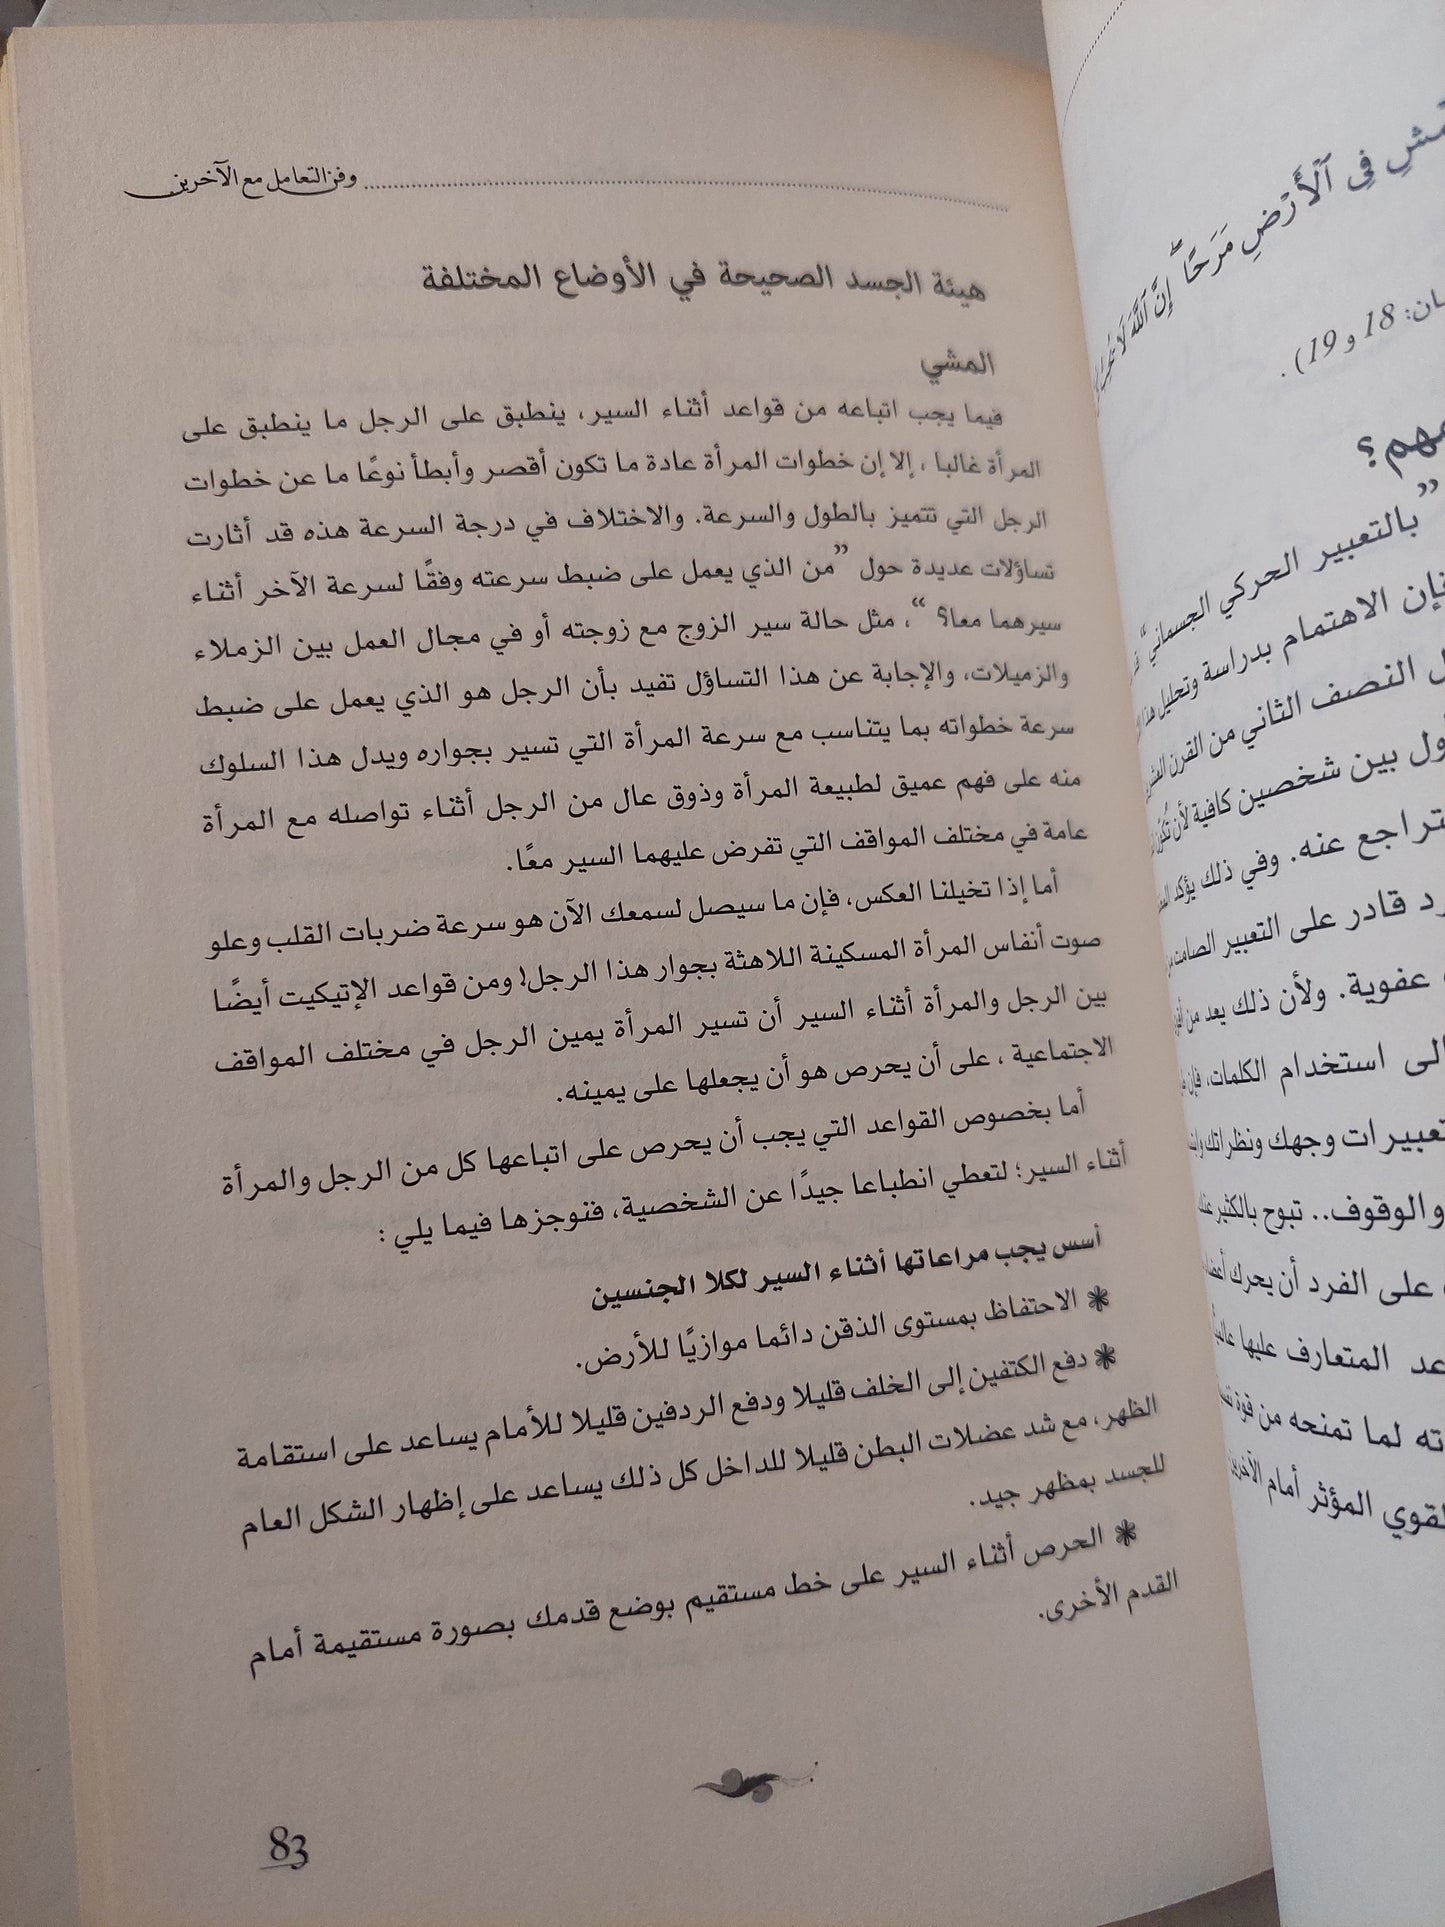 وفن التعامل مع الآخرين
هيئة الجسد الصحيحة في الأوضاع المختلفة
المشي
فيما يجب اتباعه من قواعد أثناء السير، ينطبق على الرجل ما ينطبق على
المرأة غالبا ، إلا إن خطوات المرأة عادة ما تكون أقصر وأبطأ نوعًا ما عن خطوات
الرجل التي تتميز بالطول والسرعة. والاختلاف في درجة السرعة هذه قد أثارت
تساؤلات عديدة حول ”من الذي يعمل على ضبط سرعته وفقًا لسرعة الآخر أثناء
سيرهما معا؟ “، مثل حالة سير الزوج مع زوجته أو في مجال العمل بين الزملاء
والزميلات، والإجابة عن هذا التساؤل تفيد بأن الرجل هو الذي يعمل على ضبط
سرعة خطواته بما يتناسب مع سرعة المرأة التي تسير بجواره ويدل هذا السلوك
منه على فهم عميق لطبيعة المرأة وذوق عال من الرجل أثناء تواصله مع المرأة
عامة في مختلف المواقف التي تفرض عليهما السير معًا.
أما إذا تخيلنا العكس، فإن ما سيصل لسمعك الآن هو سرعة ضربات القلب وعلو
صوت أنفاس المرأة المسكينة اللاهثة بجوار هذا الرجل! ومن قواعد الإتيكيت أيضًا
بين الرجل والمرأة أثناء السير أن تسير المرأة يمين الرجل في مختلف المواقف
الاجتماعية ، على أن يحرص هو أن يجعلها على يمينه.
أما بخصوص القواعد التي يجب أن يحرص على اتباعها كل من الرجل والمرأة
أثناء السير؛ لتعطي انطباعا جيدًا عن الشخصية، فنوجزها فيما يلي :
أسس يجب مراعاتها أثناء السير لكلا الجنسين
❋ الاحتفاظ بمستوى الذقن دائما موازيًا للأرض.
❋ دفع الكتفين إلى الخلف قليلا ودفع الردفين قليلا للأمام يساعد على استقامة
الظهر، مع شد عضلات البطن قليلا للداخل كل ذلك يساعد على إظهار الشكل العام
للجسد بمظهر جيد.
❋ الحرص أثناء السير على خط مستقيم بوضع قدمك بصورة مستقيمة أمام
القدم الأخرى.
83
فِي ٱلْأَرْضِ مَرَحًا ۖ إِنَّ ٱللَّهَ لَا
18 و 19) .
”بالتعبير الحركي الجسماني“
فإن الاهتمام بدراسة وتحليل هذا
النصف الثاني من القرن
بين شخصين كافية لأن
عنه. وفي ذلك يؤكد
قادر على التعبير الصامت
عفوية. ولأن ذلك يعد من
استخدام الكلمات، فإن
وجهك ونظراتك
والوقوف.. تبوح بالكثير
على الفرد أن يحرك
المتعارف عليها
لما تمنحه من قوة
المؤثر أمام